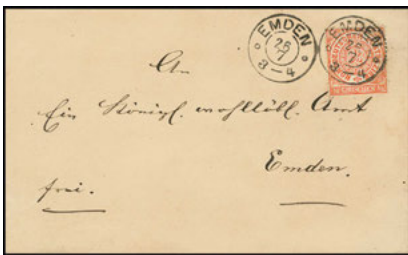 EMDEN
26
7
3–4
EMDEN
26
7
3–4
An
Ein Königl. wohllöbl. Amt
Emden.
frei.